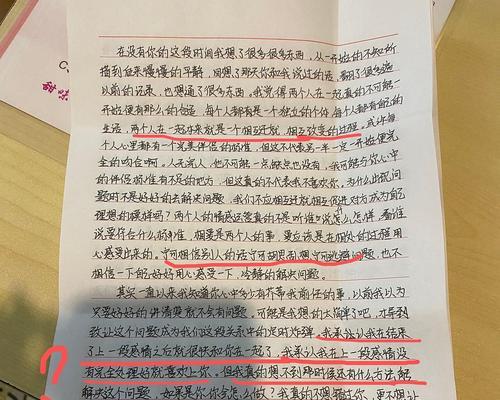 在没有你的这段时间我想了很多很多东西，从一开始的不知所
措到后来慢慢的平静，回想了那天你和我说过的话，翻了很多遍
以前的话来，也想通了很多东西。我觉得两个人在一起真的不可能一
开始便有那么的合适，每个人都有是一个独立的个体，每个人都有自己的
生活，两个人在一起本来就是一个相互迁就，相互改变的过程。或许每
个人心里都有一个完美伴侣的标准，但这不代表另一半一定一开始便完
全的吻合啊。人无完人，也不可能一点缺点也没有，我可能与你心中
的伴侣标准有不足的地方，但这真的不代表我不喜欢你。为什么出现问
题时不是好好的去解决问题，我们不应相互迁就相互促进对方成为自己
理想的模样吗？两个人的情感这些真的不是听谁说怎么怎样，看谁
说要符合什么标准，相爱是两个人的事，更应该是在相处的过程用
心感受出来的。宁可相信别人的话宁可胡思乱想宁可逃避问题，也不
相信一下自己好好用心感受一下，冷静的解决问题。
其实一直以来我知道你心中多少有介蒂我前任的事，以前我以为
只要好好的讲清楚就不会有问题。可能是我想的太简单了吧，才导
致让这个问题成为我们这段关系中的定时炸弹。我承认我在结束
了上一段感情之后就很快和你在一起了，我承认我在上一段感情没
有完全处理好就喜欢上你。但我真的想不到那时候还有什么方法能
解决这个问题，如果是你你会怎么做？我真的不想错过你，更不想让
?
C
甜